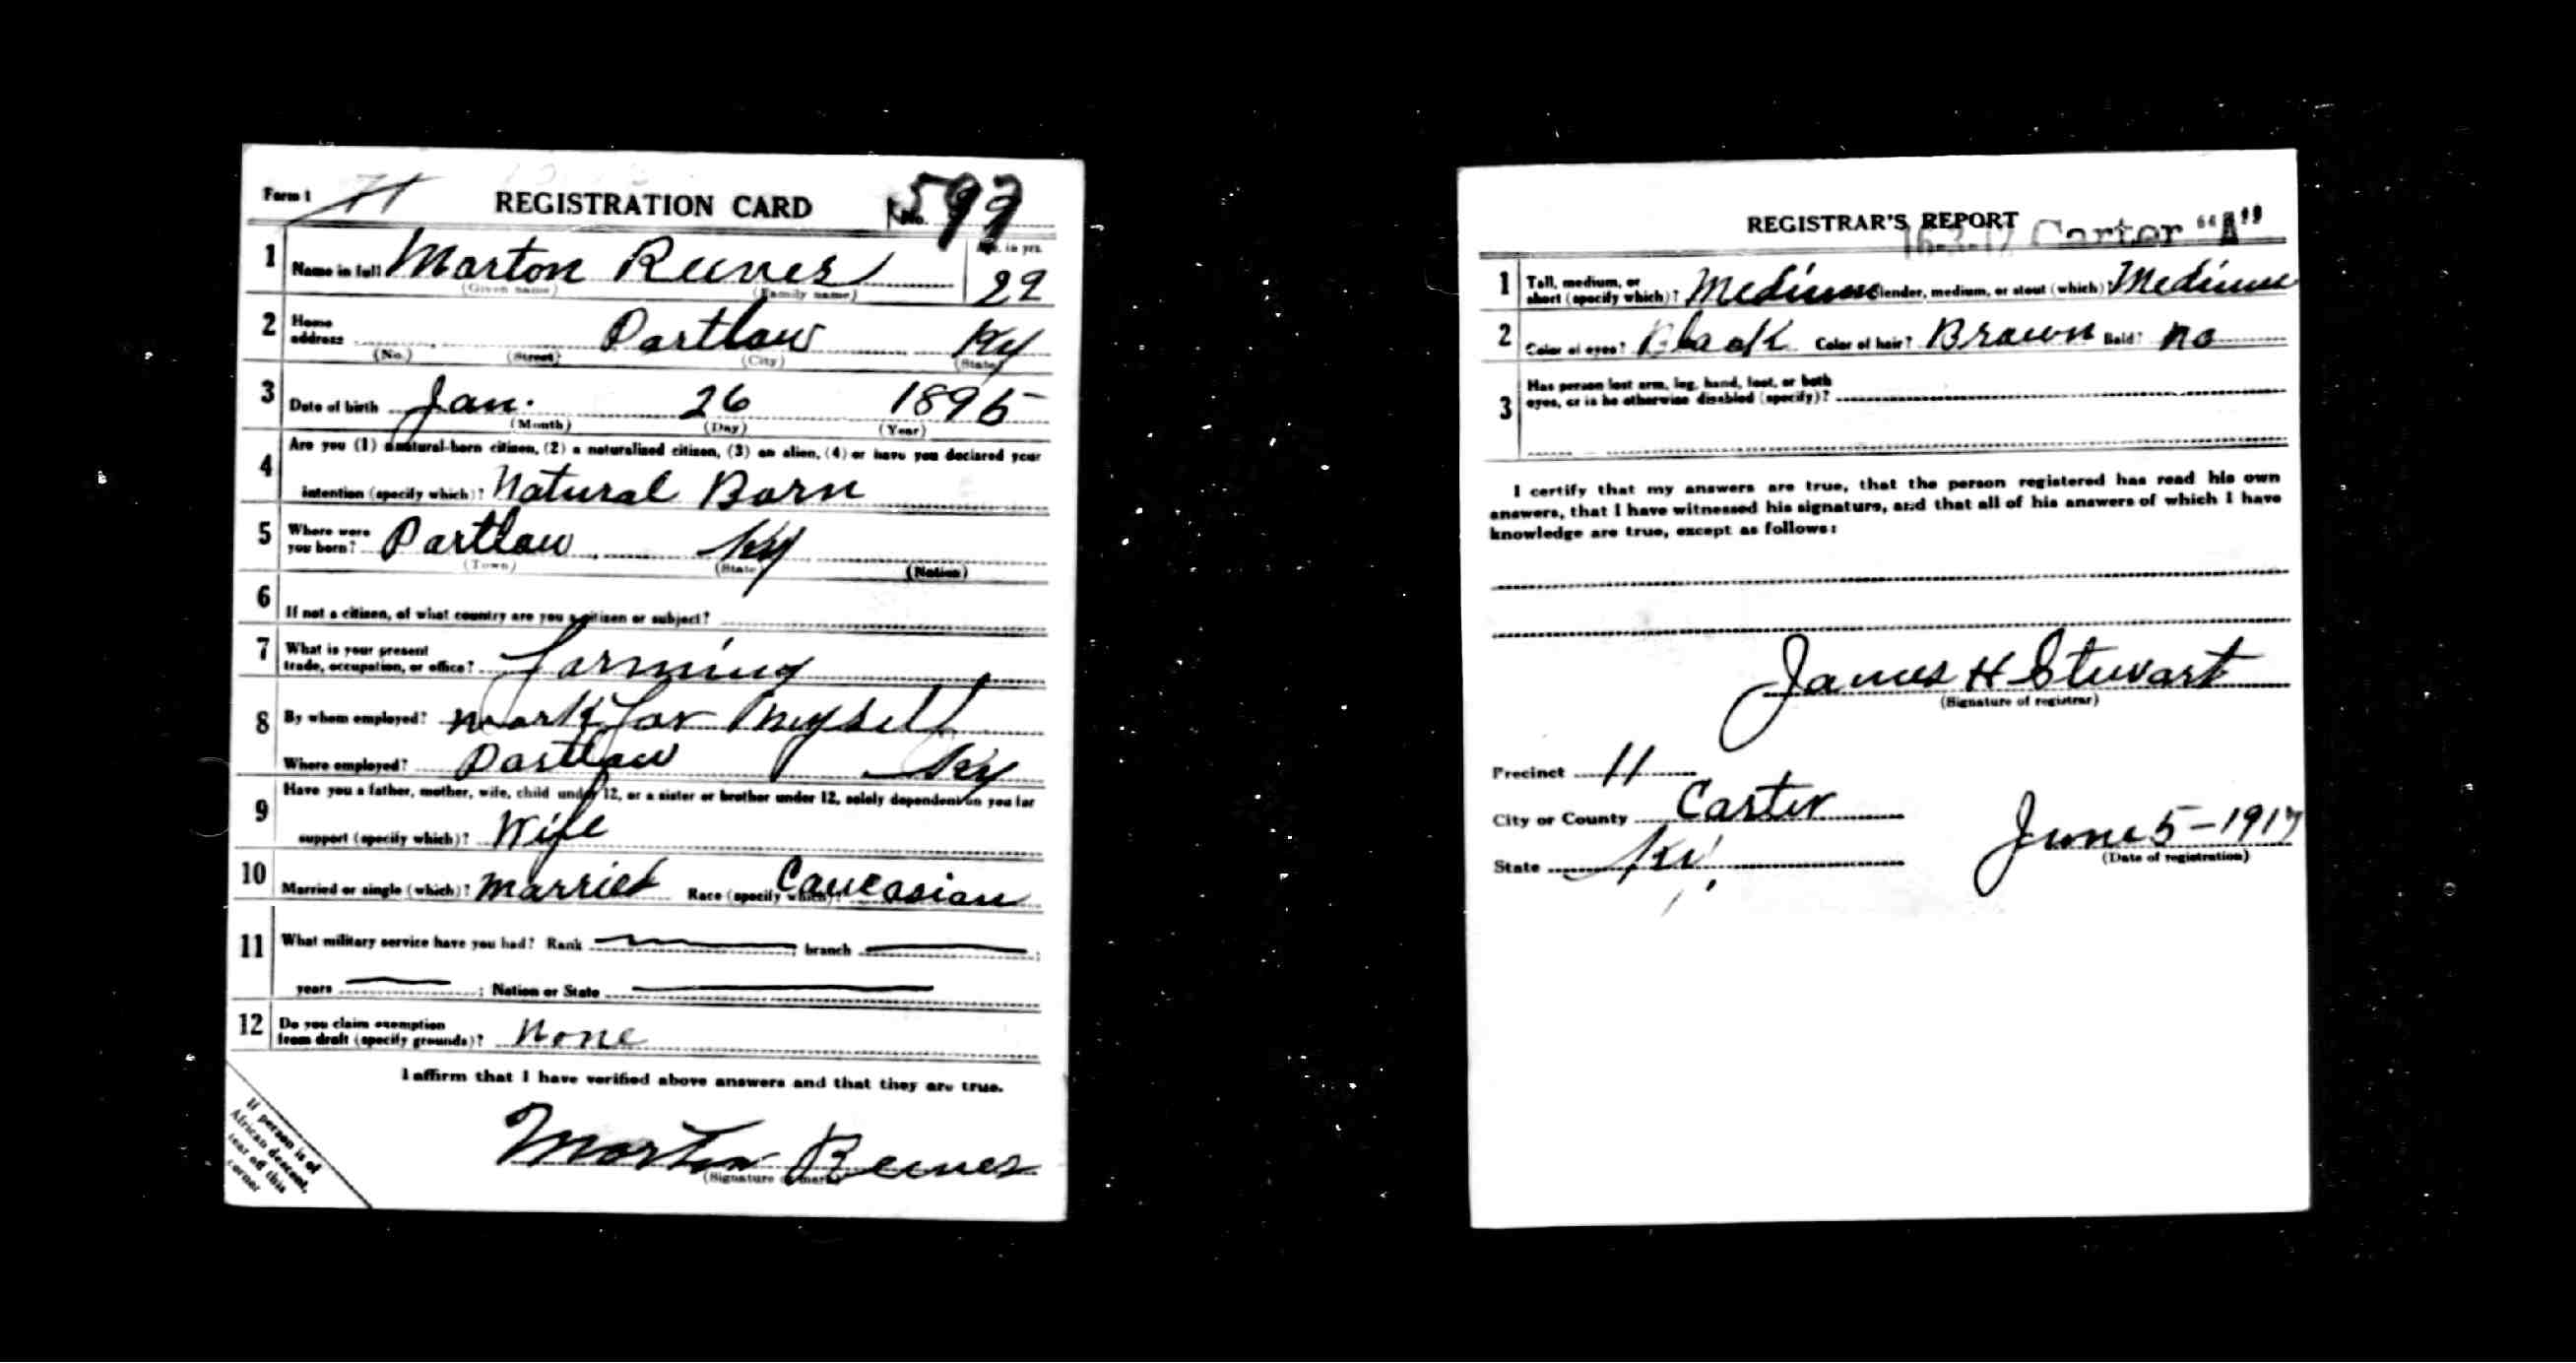 Form 1 REGISTRATION CARD No. 599
1 Name in full Marton Reeves Age, in yrs.
(Given name) (Family name) 22
2 Home address Partlow Ky
(No.) (Street) (City) (State)
3 Date of birth Jan. 26 1895
(Month) (Day) (Year)
4 Are you (1) a natural-born citizen, (2) a naturalized citizen, (3) an alien, (4) or have you declared your
intention (specify which)? Natural Born
5 Where were you born? Partlow Ky
(Town) (State) (Nation)
6 If not a citizen, of what country are you a citizen or subject?
7 What is your present
trade, occupation, or office? farming
8 By whom employed? Work for Myself
Where employed? Partlow Ky
9 Have you a father, mother, wife, child under 12, or a sister or brother under 12, solely dependent on you for
support (specify which)? Wife
10 Married or single (which)? married Race (specify which)? Caucasian
11 What military service have you had? Rank ; branch ;
years ; Nation or State
12 Do you claim exemption
from draft (specify grounds)? None
I affirm that I have verified above answers and that they are true.
Morton Reeves
(Signature or mark)
If person is of
African descent,
tear off this
corner
REGISTRAR'S REPORT
Carter "A"
1 Tall, medium, or
short (specify which)? Medium Slender, medium, or stout (which)? Medium
2 Color of eyes? Black Color of hair? Brown Bald? no
3 Has person lost arm, leg, hand, foot, or both
eyes, or is he otherwise disabled (specify)?
I certify that my answers are true, that the person registered has read his own
answers, that I have witnessed his signature, and that all of his answers of which I have
knowledge are true, except as follows:
James H Stewart
(Signature of registrar)
Precinct 11
City or County Carter
State Ky. June 5-1917
(Date of registration)